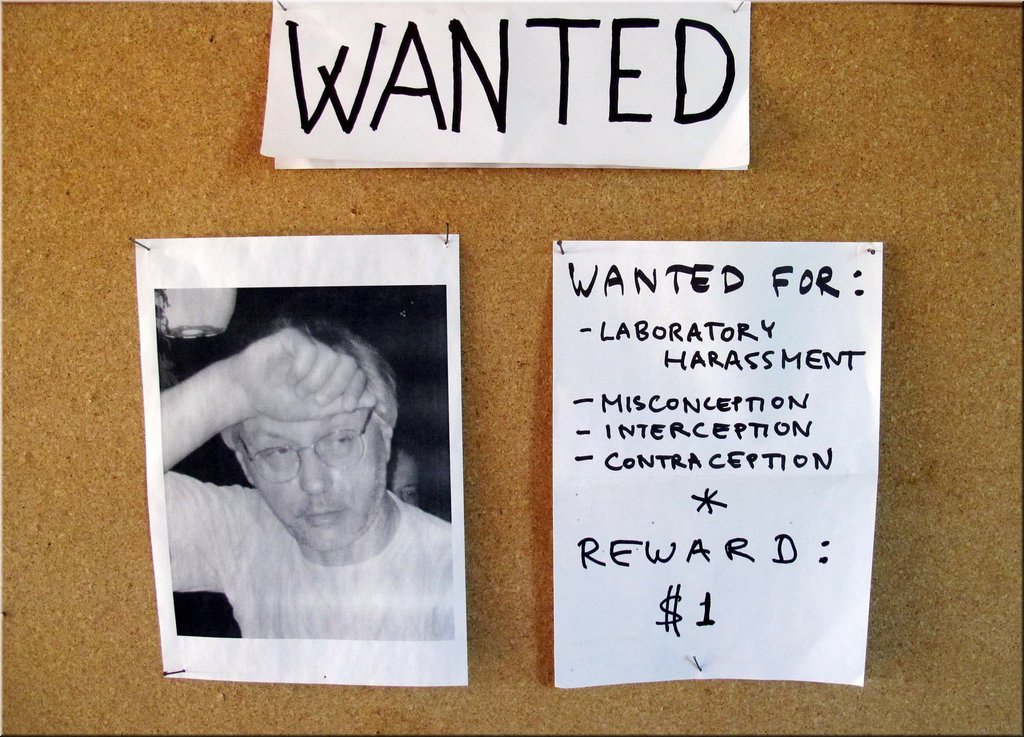 WANTED
WANTED FOR:
- LABORATORY
HARASSMENT
- MISCONCEPTION
- INTERCEPTION
- CONTRACEPTION
*
REWARD:
$1